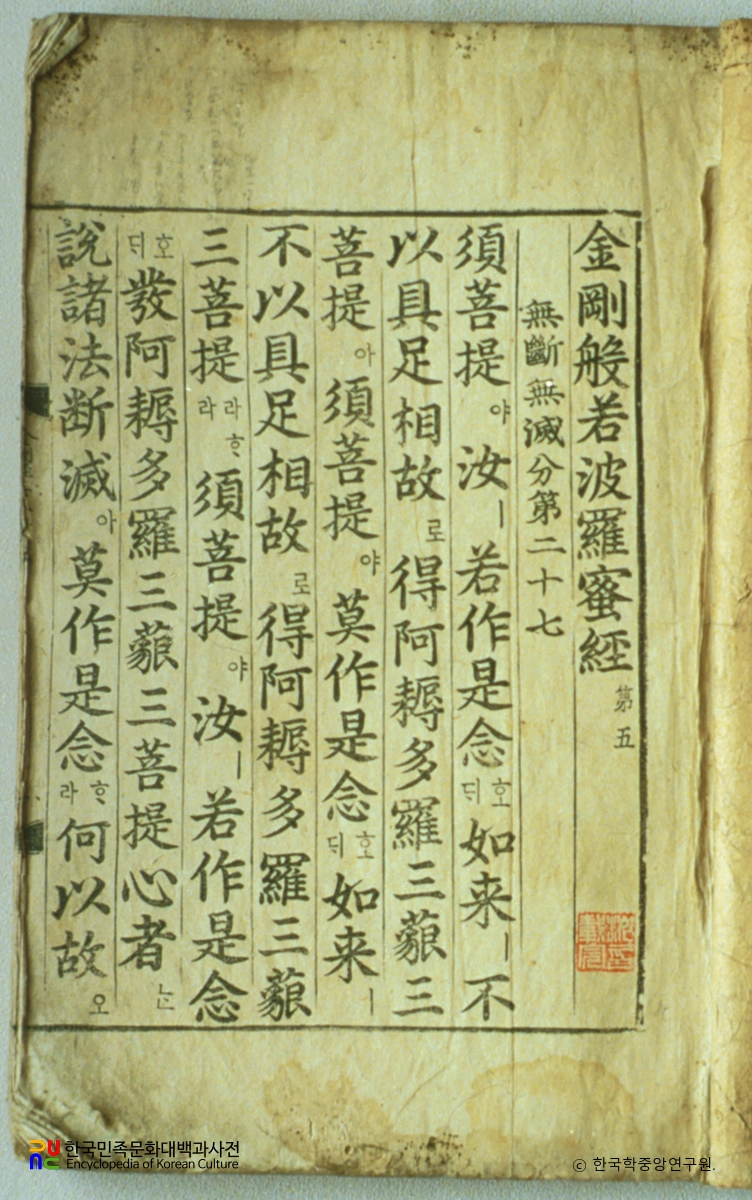 金剛般若波羅蜜經 第五
無斷無滅分第二十七
須菩提야汝ㅣ若作是念호ᄃᆡ如来ㅣ不
以具足相故로得阿耨多羅三藐三
菩提아須菩提야莫作是念호ᄃᆡ如来ㅣ
不以具足相故로得阿耨多羅三藐
三菩提라ᄒᆞ라須菩提야汝ㅣ若作是念
호ᄃᆡ發阿耨多羅三藐三菩提心者ᄂᆞᆫ
說諸法断滅아莫作是念ᄒᆞ라何以故오
한국민족문화대백과사전
Encyclopedia of Korean Culture
ⓒ 한국학중앙연구원.